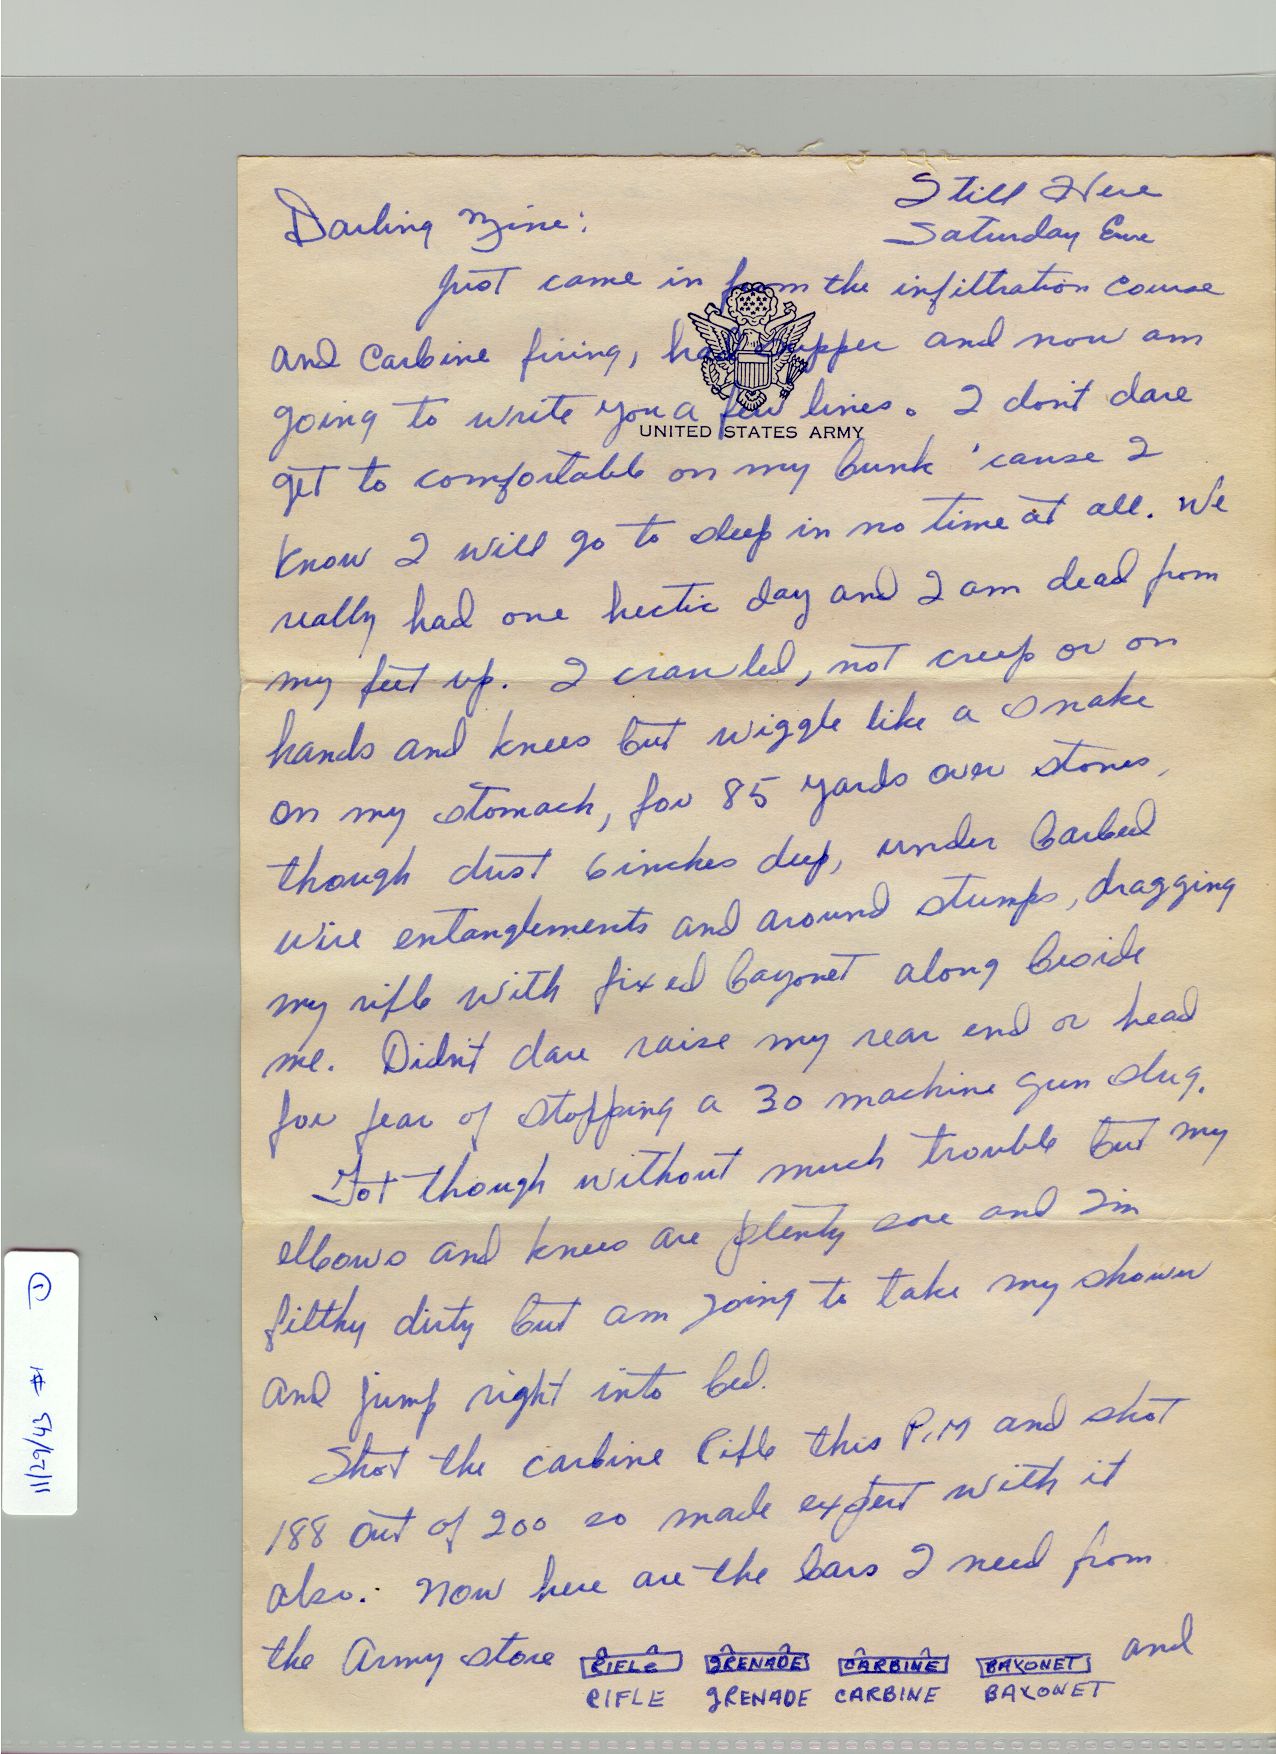 Still Here
Darling Mine:
Saturday Eve
Just came in from the infiltration course
and Carbine firing, had supper and now am
going to write you a few lines. I don't dare
UNITED STATES ARMY
get to comfortable on my bunk 'cause I
know I will go to sleep in no time at all. We
really had one hectic day and I am dead from
my feet up. I crawled, not creep or on
hands and knees but wiggle like a snake
on my stomach, for 85 yards over stones,
though dust 6 inches deep, under barbed
wire entanglements and around stumps, dragging
my rifle with fixed bayonet along beside
me. Didn't dare raise my rear end or head
for fear of stopping a 30 machine gun slug.
Got though without much trouble but my
elbows and knees are plenty sore and I'm
filthy dirty but am going to take my shower
and jump right into bed.
Shot the carbine Rifle this P.M and shot
188 out of 200 so made expert with it
also. Now here are the bars I need from
the Army store RIFLE GRENADE CARBINE BAYONET and
RIFLE GRENADE CARBINE BAYONET
11/29/45 #1